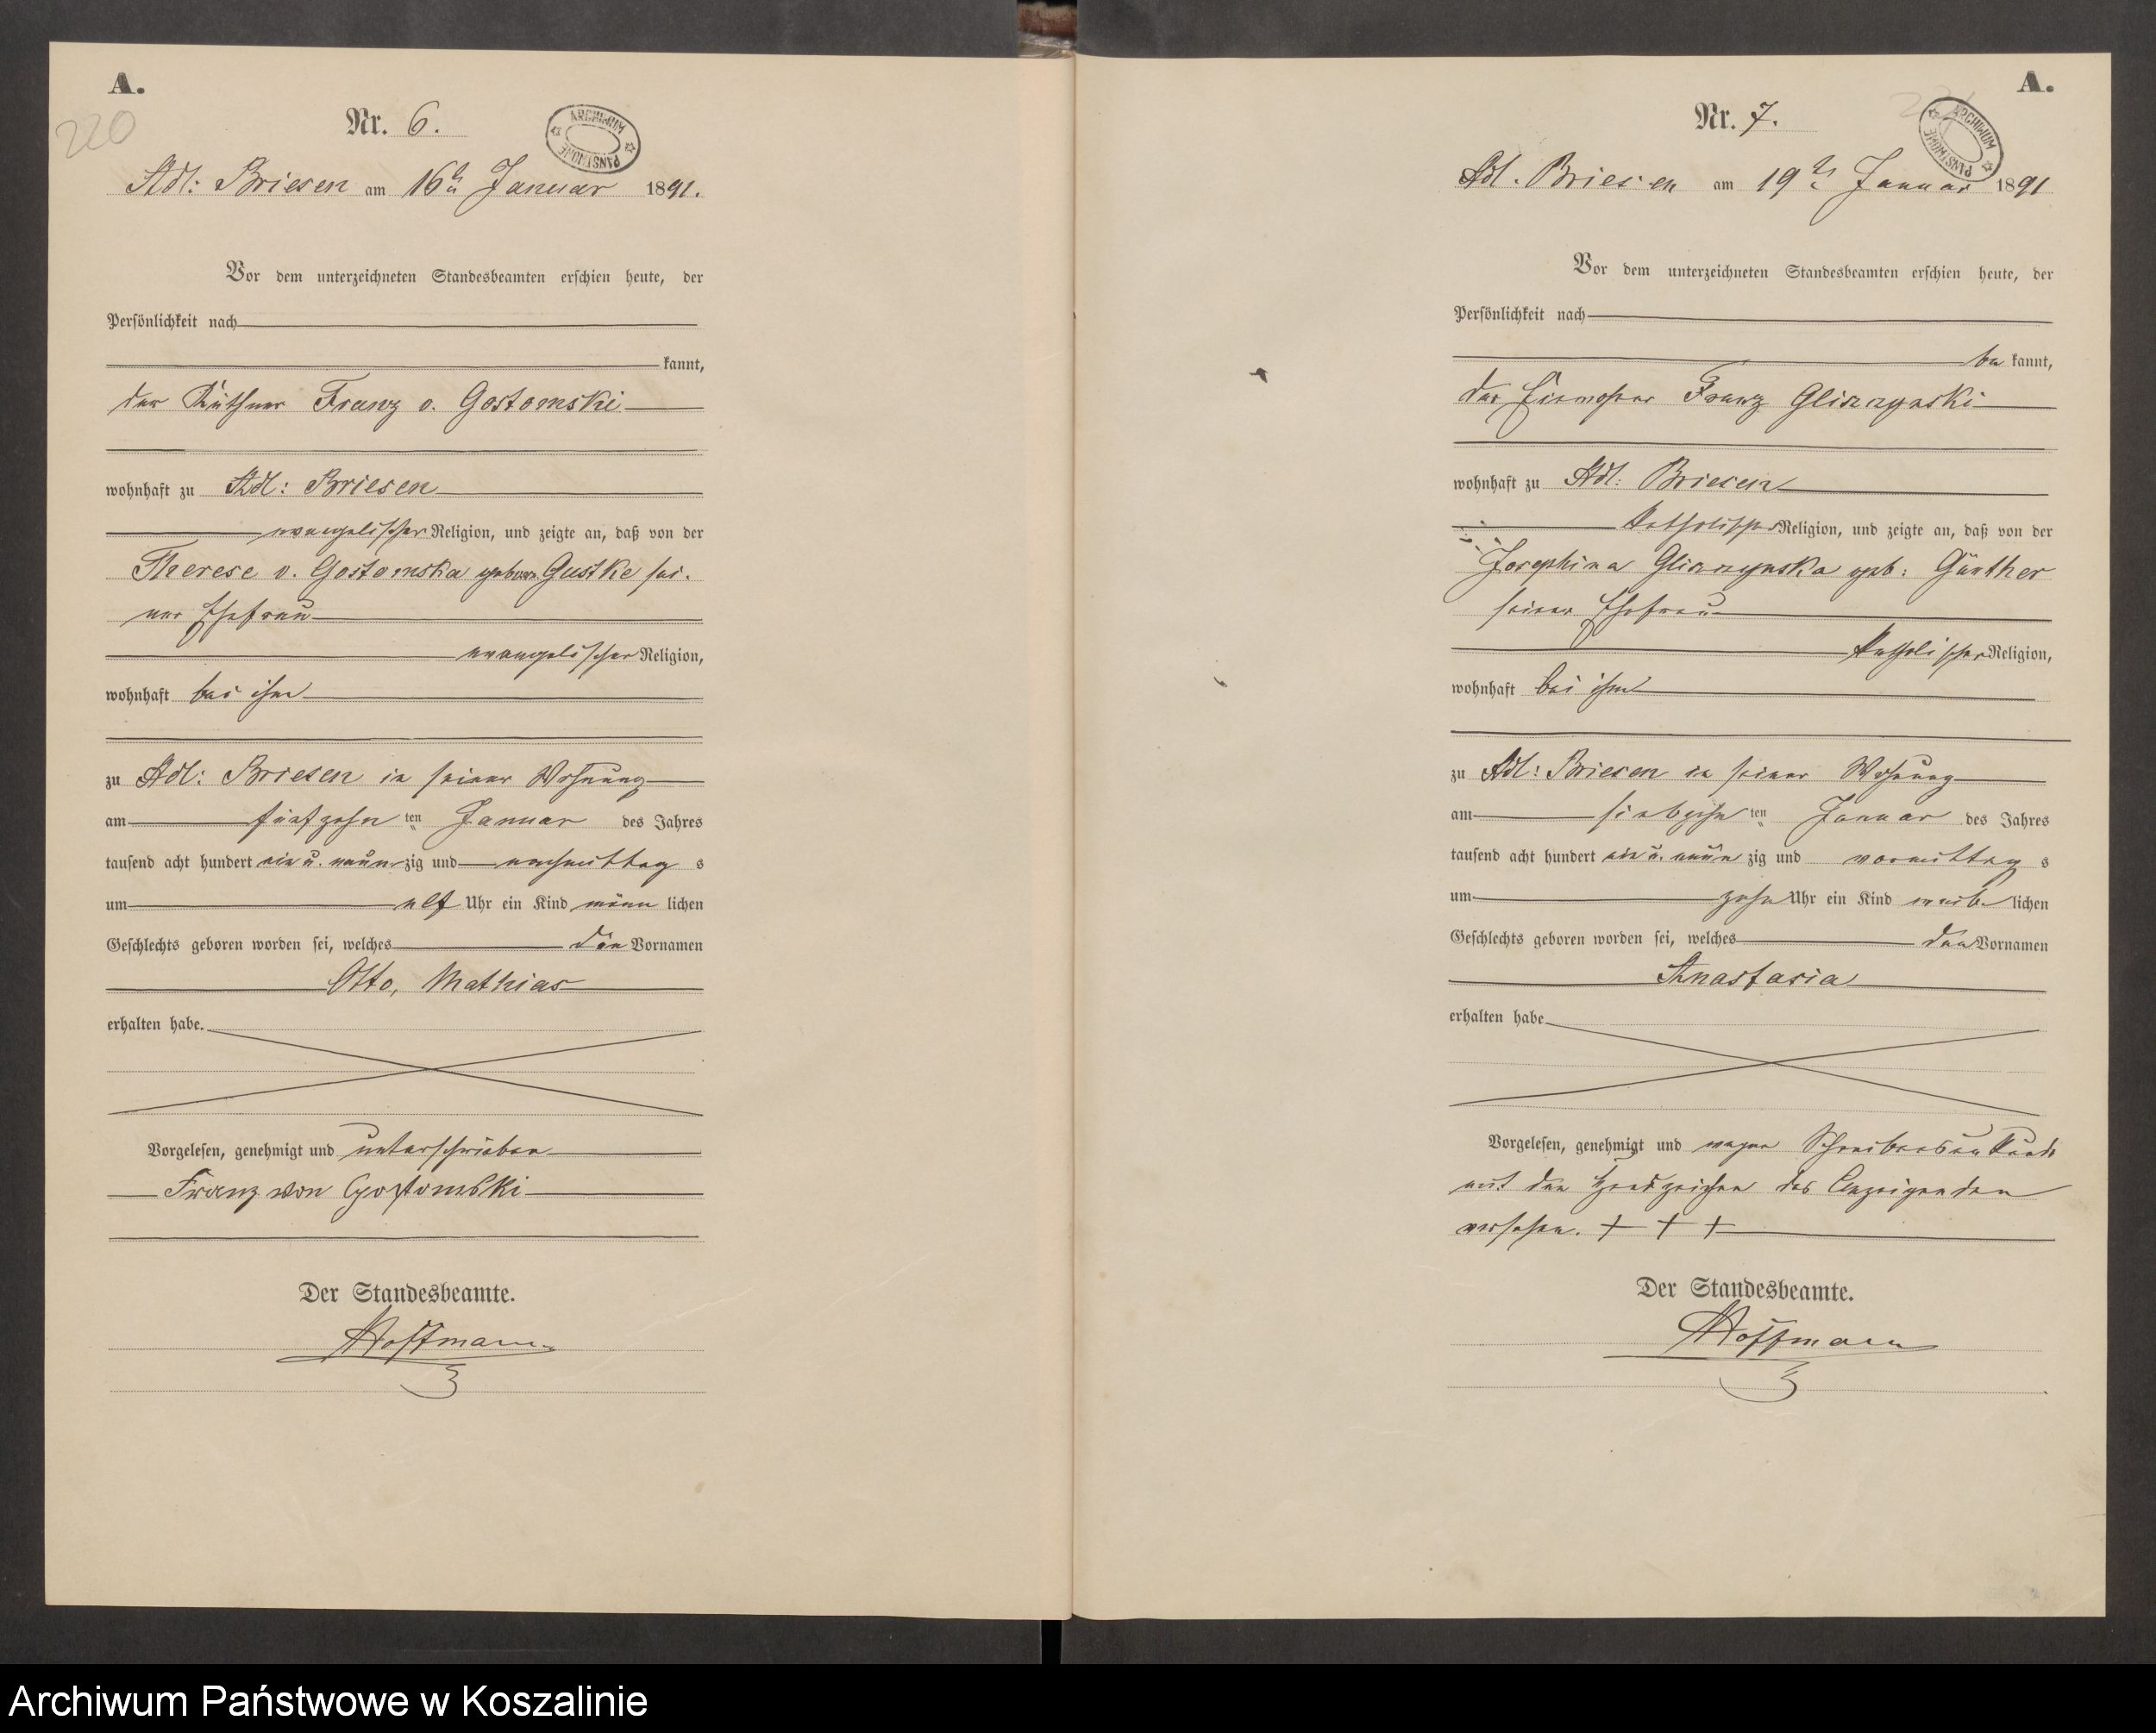 A.
220
Nr. 6.
ARCHIWUM PAŃSTWOWE
Adl: Briesen am 16ten Januar 1891.
Vor dem unterzeichneten Standesbeamten erschien heute, der
Persönlichkeit nach
kannt,
der Käthner Franz v. Gostomski
wohnhaft zu Adl: Briesen
evangelischer Religion, und zeigte an, daß von der
Therese v. Gostomska geboren Gustke sei-
ner Ehefrau
evangelischer Religion,
wohnhaft bei ihm
zu Adl: Briesen in seiner Wohnung
am fünfzehn ten Januar des Jahres
tausend acht hundert ein u. neun zig und nachmittag s
um elf Uhr ein Kind männ lichen
Geschlechts geboren worden sei, welches die Vornamen
Otto, Mathias
erhalten habe.
Vorgelesen, genehmigt und unterschrieben
Franz von Gostomski
Der Standesbeamte.
Hoffmann
A.
Nr. 7.
ARCHIWUM PAŃSTWOWE
Adl. Briesen am 19ten Januar 1891
Vor dem unterzeichneten Standesbeamten erschien heute, der
Persönlichkeit nach
be kannt,
der Einwohner Franz Glisczynski
wohnhaft zu Adl: Briesen
katholischer Religion, und zeigte an, daß von der
Josephina Glisczynska geb: Günther
seiner Ehefrau
katholischer Religion,
wohnhaft bei ihm
zu Adl: Briesen in seiner Wohnung
am siebzehn ten Januar des Jahres
tausend acht hundert ein u. neun zig und vormittag s
um zehn Uhr ein Kind weib lichen
Geschlechts geboren worden sei, welches den Vornamen
Anastasia
erhalten habe
Vorgelesen, genehmigt und wegen Schreibensunkunde
mit den Handzeichen des Anzeigenden
versehen. + + +
Der Standesbeamte.
Hoffmann
Archiwum Państwowe w Koszalinie